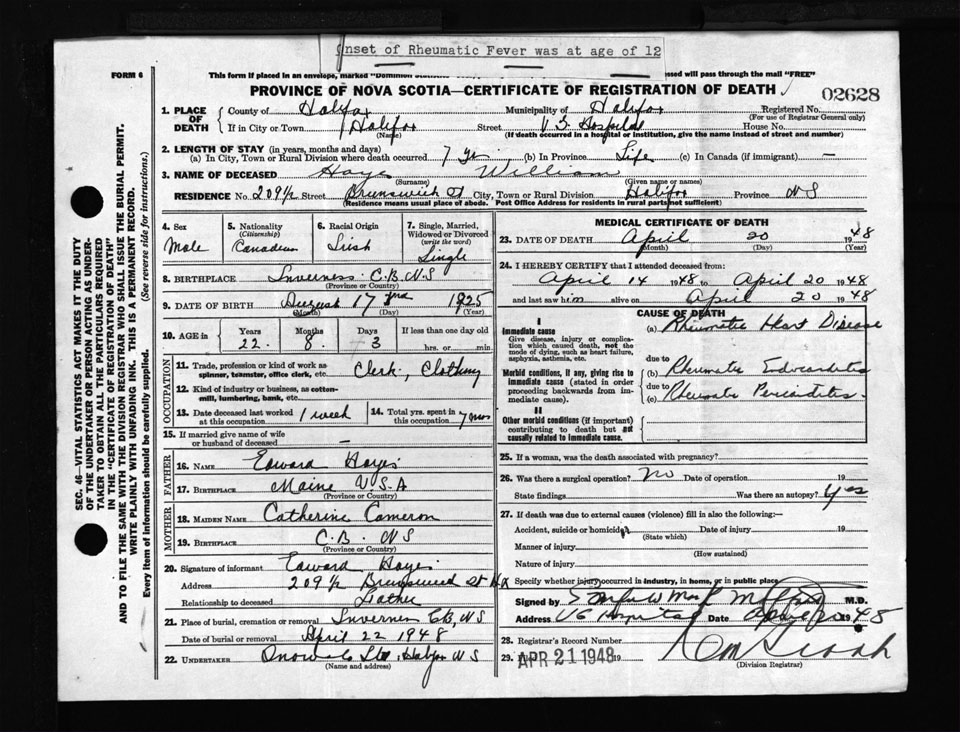 Onset of Rheumatic Fever was at age of 12
FORM 6
This form if placed in an envelope, marked "Dominion essed will pass through the mail "FREE"
PROVINCE OF NOVA SCOTIA—CERTIFICATE OF REGISTRATION OF DEATH
02628
1. PLACE OF DEATH
County of Halifax Municipality of Halifax Registered No.
(For use of Registrar General only)
If in City or Town Halifax Street V. G. Hospital House No.
(Name) (If death occurred in a hospital or institution, give the name instead of street and number)
2. LENGTH OF STAY (in years, months and days)
(a) In City, Town or Rural Division where death occurred 7 yr (b) In Province Life (c) In Canada (if immigrant) —
3. NAME OF DECEASED Hayes William
(Surname) (Given name or names)
RESIDENCE No. 209½ Street Brunswick St City, Town or Rural Division Halifax Province N S
(Residence means usual place of abode. Post Office Address for residents in rural parts not sufficient)
4. Sex Male
5. Nationality (Citizenship) Canadian
6. Racial Origin Irish
7. Single, Married, Widowed or Divorced (write the word) Single
8. BIRTHPLACE Inverness C.B. N.S
(Province or Country)
9. DATE OF BIRTH August 17 1925
(Month) (Day) (Year)
10. AGE in Years 22 Months 8 Days 3 If less than one day old
hrs. or min.
OCCUPATION
11. Trade, profession or kind of work as spinner, teamster, office clerk, etc. Clerk, Clothing
12. Kind of industry or business, as cotton-mill, lumbering, bank, etc.
13. Date deceased last worked at this occupation 1 week
14. Total yrs. spent in this occupation 7 mos
15. If married give name of wife or husband of deceased —
FATHER
16. NAME Edward Hayes
17. BIRTHPLACE Maine U.S.A
(Province or Country)
MOTHER
18. MAIDEN NAME Catherine Cameron
19. BIRTHPLACE C.B. N S
(Province or Country)
20. Signature of informant Edward Hayes
Address 209½ Brunswick St Hfx
Relationship to deceased Father
21. Place of burial, cremation or removal Inverness CB, N S
Date of burial or removal April 22 1948
22. UNDERTAKER Snow & Co Ltd. Halifax N S
(Name and address)
MEDICAL CERTIFICATE OF DEATH
23. DATE OF DEATH April 20 1948
(Month) (Day) (Year)
24. I HEREBY CERTIFY that I attended deceased from:
April 14 1948 to April 20 1948
and last saw him alive on April 20 1948
CAUSE OF DEATH
I
Immediate cause
Give disease, injury or complication which caused death, not the mode of dying, such as heart failure, asphyxia, asthenia, etc.
(a) Rheumatic Heart Disease
due to
Morbid conditions, if any, giving rise to immediate cause (stated in order proceeding backwards from immediate cause).
(b) Rheumatic Endocarditis
due to
(c) Rheumatic Pericarditis.
II
Other morbid conditions (if important) contributing to death but not causally related to immediate cause.
25. If a woman, was the death associated with pregnancy?
26. Was there a surgical operation? No Date of operation 19
State findings Was there an autopsy? Yes
27. If death was due to external causes (violence) fill in also the following:—
Accident, suicide or homicide Date of injury 19
(State which)
Manner of injury
(How sustained)
Nature of injury
Specify whether injury occurred in industry, in home, or in public place
Signed by M.D.
Address V G Hospital Date April 20 1948
28. Registrar's Record Number
29. APR 21 1948 19
(Division Registrar)
SEC. 46—VITAL STATISTICS ACT MAKES IT THE DUTY
OF THE UNDERTAKER OR PERSON ACTING AS UNDER-
TAKER TO OBTAIN ALL THE PARTICULARS REQUIRED
IN THE "CERTIFICATE OF REGISTRATION OF DEATH"
AND TO FILE THE SAME WITH THE DIVISION REGISTRAR WHO SHALL ISSUE THE BURIAL PERMIT.
WRITE PLAINLY WITH UNFADING INK. THIS IS A PERMANENT RECORD.
Every item of information should be carefully supplied. (See reverse side for instructions.)